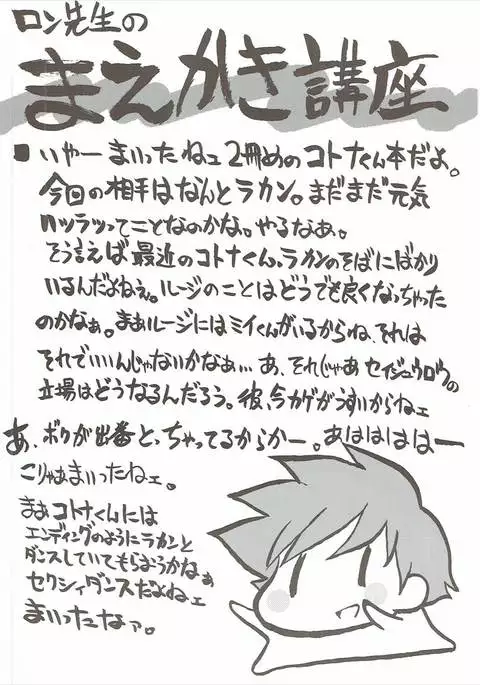 ロン先生の
まえがき講座
■いやーまいったねェ2冊めのコトナくん本だよ。
今回の相手はなんとラカン。まだまだ元気
ハツラツってことなのかな。やるなあ。
そう言えば最近のコトナくん、ラカンのそばにばかり
いるんだよねぇ。ルージのことはどうでも良くなっちゃった
のかなぁ。まぁルージにはミイくんがいるからね、それは
それでいいんじゃないかなぁ…あ、それじゃあセイジュウロウの
立場はどうなるんだろう。彼、今カゲがうすいからねェ
あ、ボクが出番とっちゃってるからかー。あはははは―
こりゃぁまいったねェ。
まぁコトナくんには
エンディングのようにラカンと
ダンスしていてもらおうかなぁ
セクシィダンスだよねェ
まいったなァ。